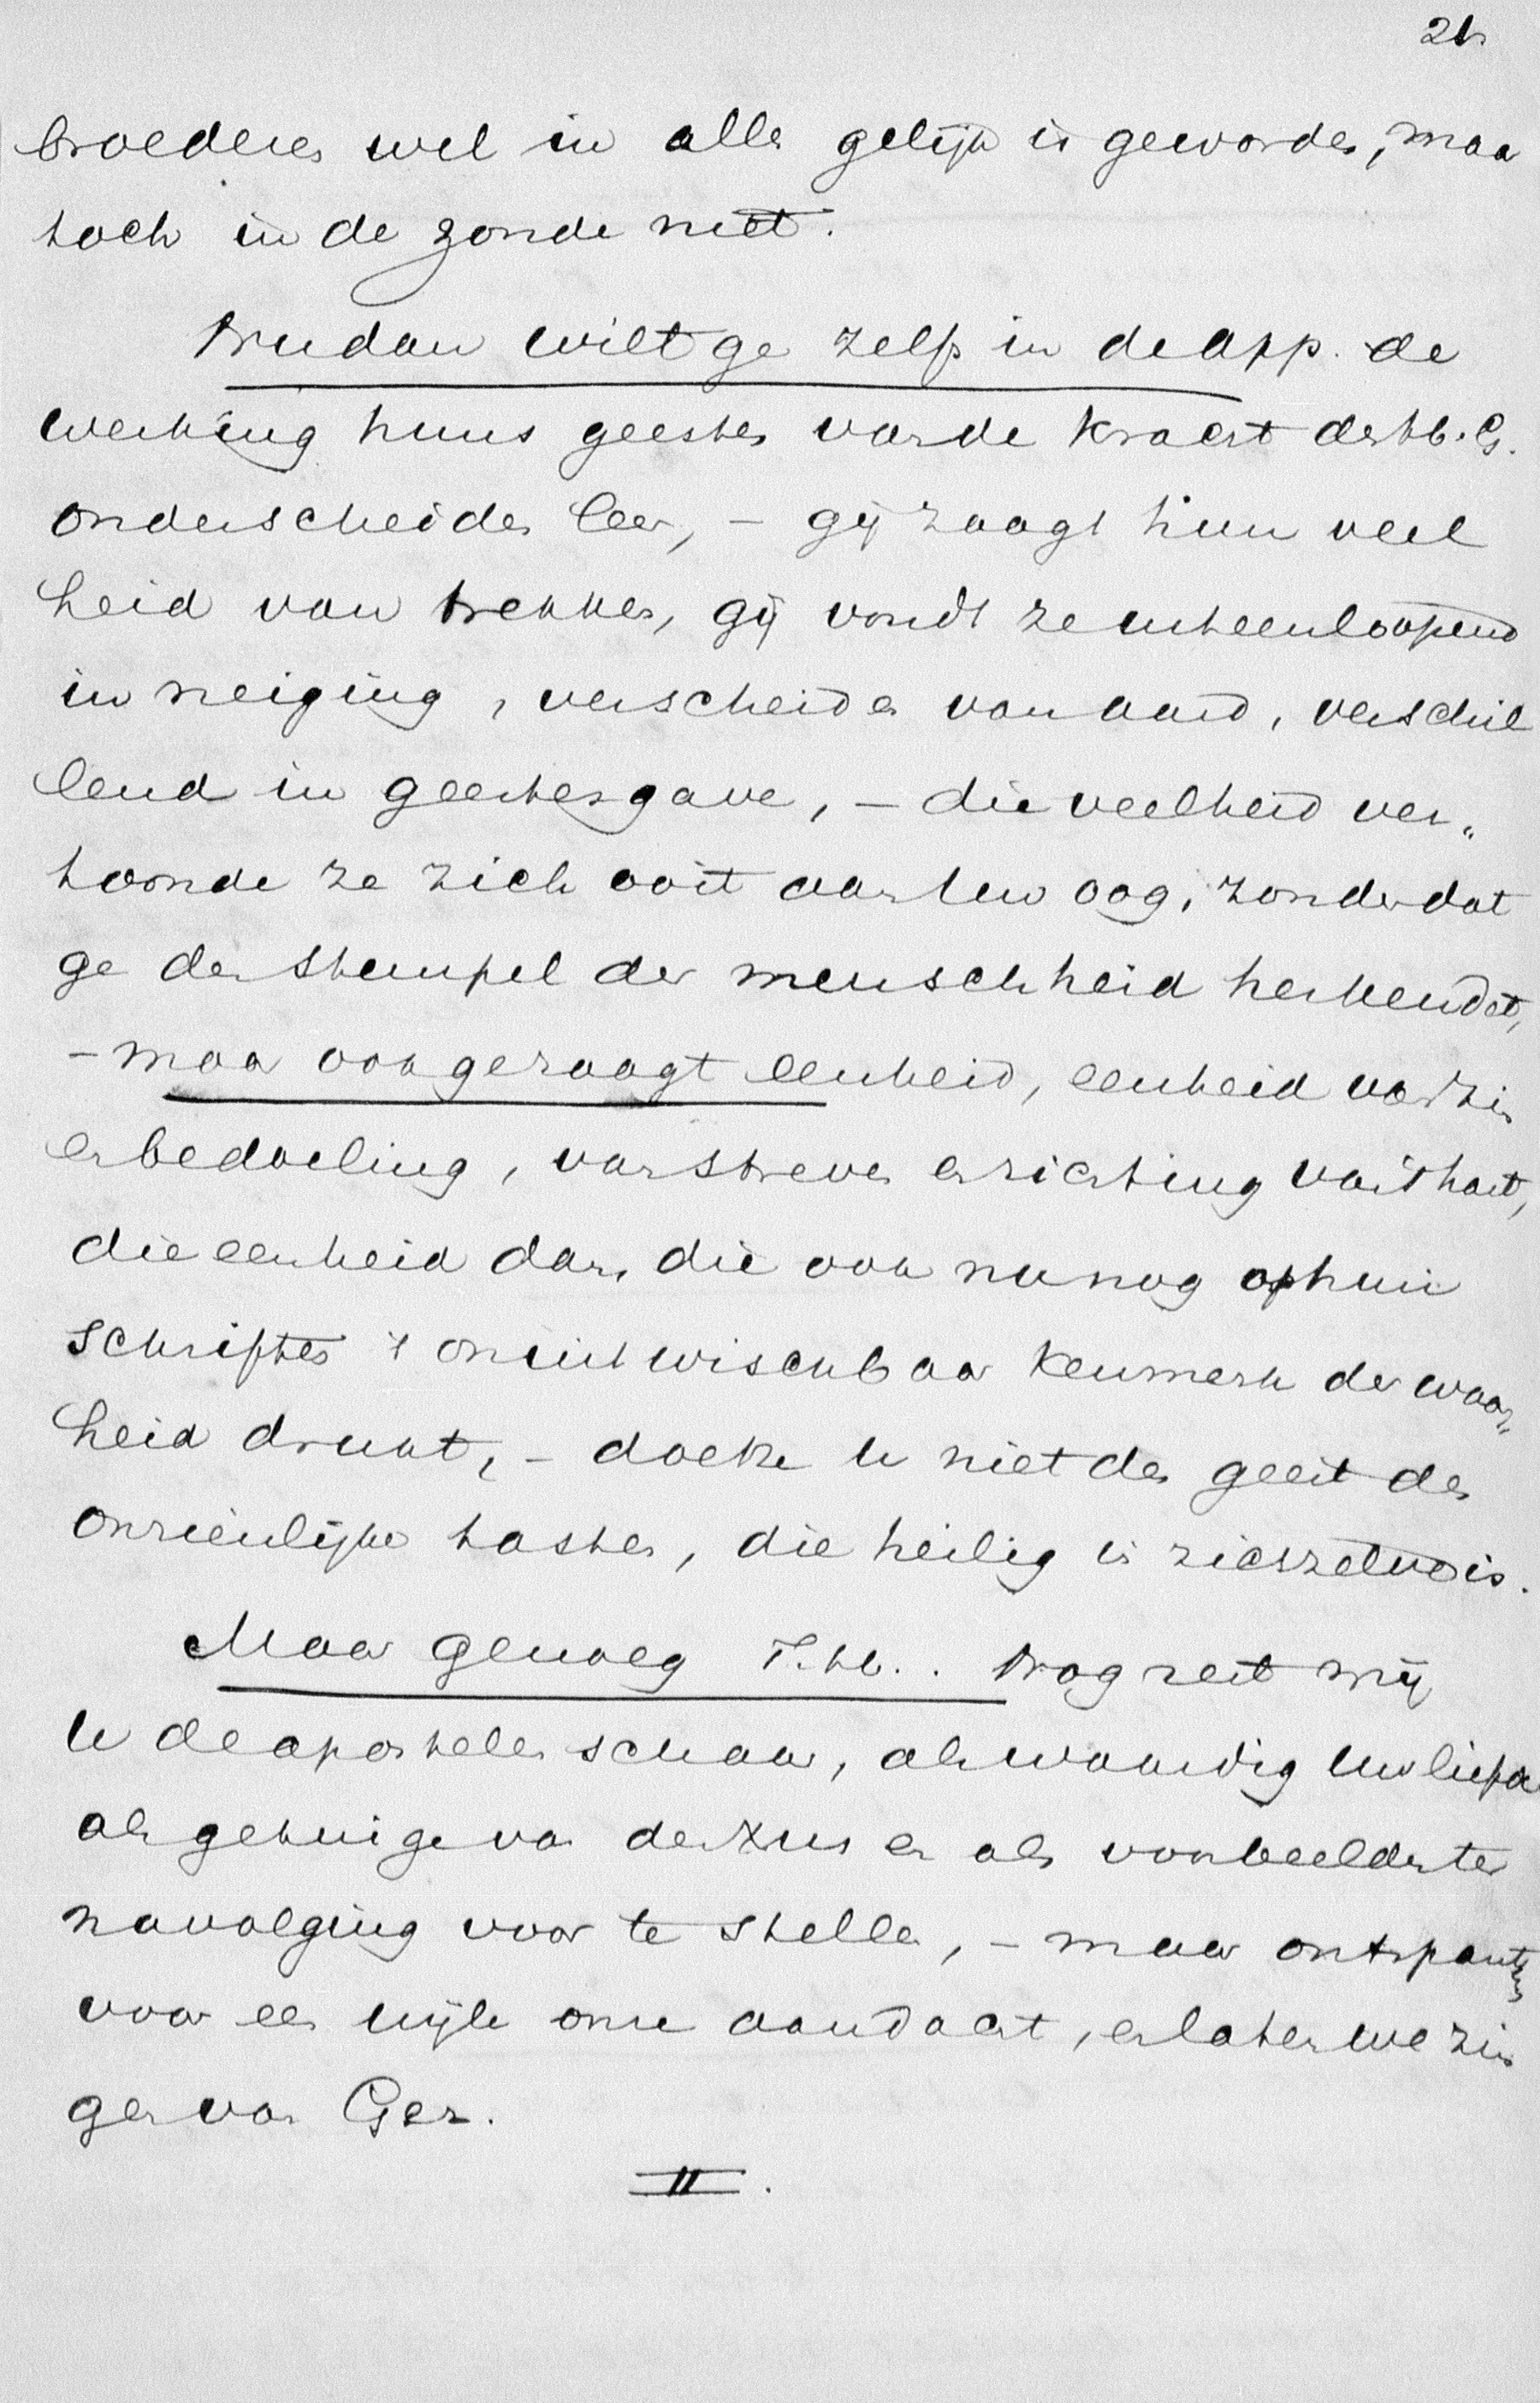 21
broederen wel in alle gelijk is geworden, maar
toch in de zonde niet.
En dan wilt ge zelf in de App. de
werking huns geestes van de kracht des H. G.
onderscheiden leer, – gij zaagt hun veel
heid van trekken, gij vondt ze uiteenloopend
in neiging, verscheiden van aard, verschil
lend in geestesgave, – die veelheid ver„
toonde ze zich ooit aan uw oog, zonder dat
ge den stempel der menschheid herkendet,
– maar ook gezaagt eenheid, eenheid van zin
en bedoeling, van streven en richting van 't hart,
die eenheid dan, die ook nu nog op hun
schriften 't onuitwischbaar kenmerk der waar„
heid drukt, – doe ze U niet den geest des
onzienlijken tasten, die heilig is zich zelve is.
Maar genoeg T. H.. Nog rest mij
U de apostelen schaar, als waardig Uw liefde
als getuige van den Xus en als voorbeelden ter
navolging voor te stellen, – maar ontspant zich
voor een wijle onze aandacht, en laten we zin
gen van Gez.
II.